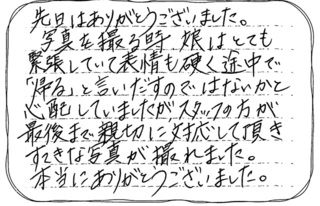 先日はありがとうございました。
写真を撮る時、娘はとても
緊張していて表情も硬く途中で
「帰る」と言いだすのではないかと
心配していましたがスタッフの方が
最後まで親切に対応して頂き
すてきな写真が撮れました。
本当にありがとうございました。